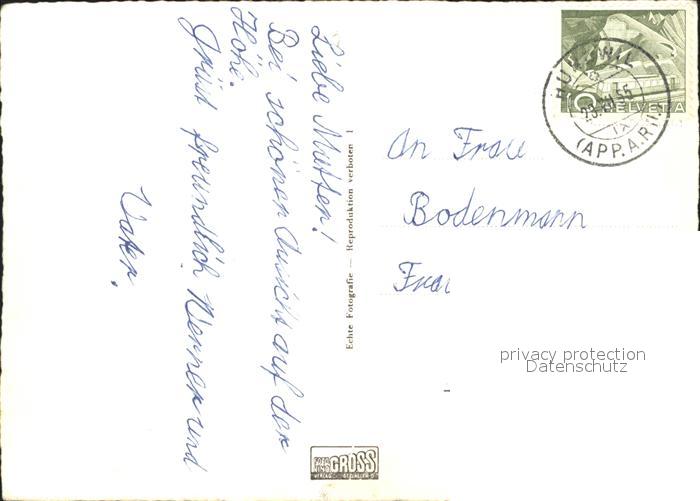 Liebe Mutter!
Bei schöner Aussicht auf der
Höhe.
Grüsst freundlich Werner und
Vater.
Echte Fotografie — Reproduktion verboten
An Frau
Bodenmann
Frau
HELVETIA
(APP.A.RH.)
privacy protection
Datenschutz
GROSS